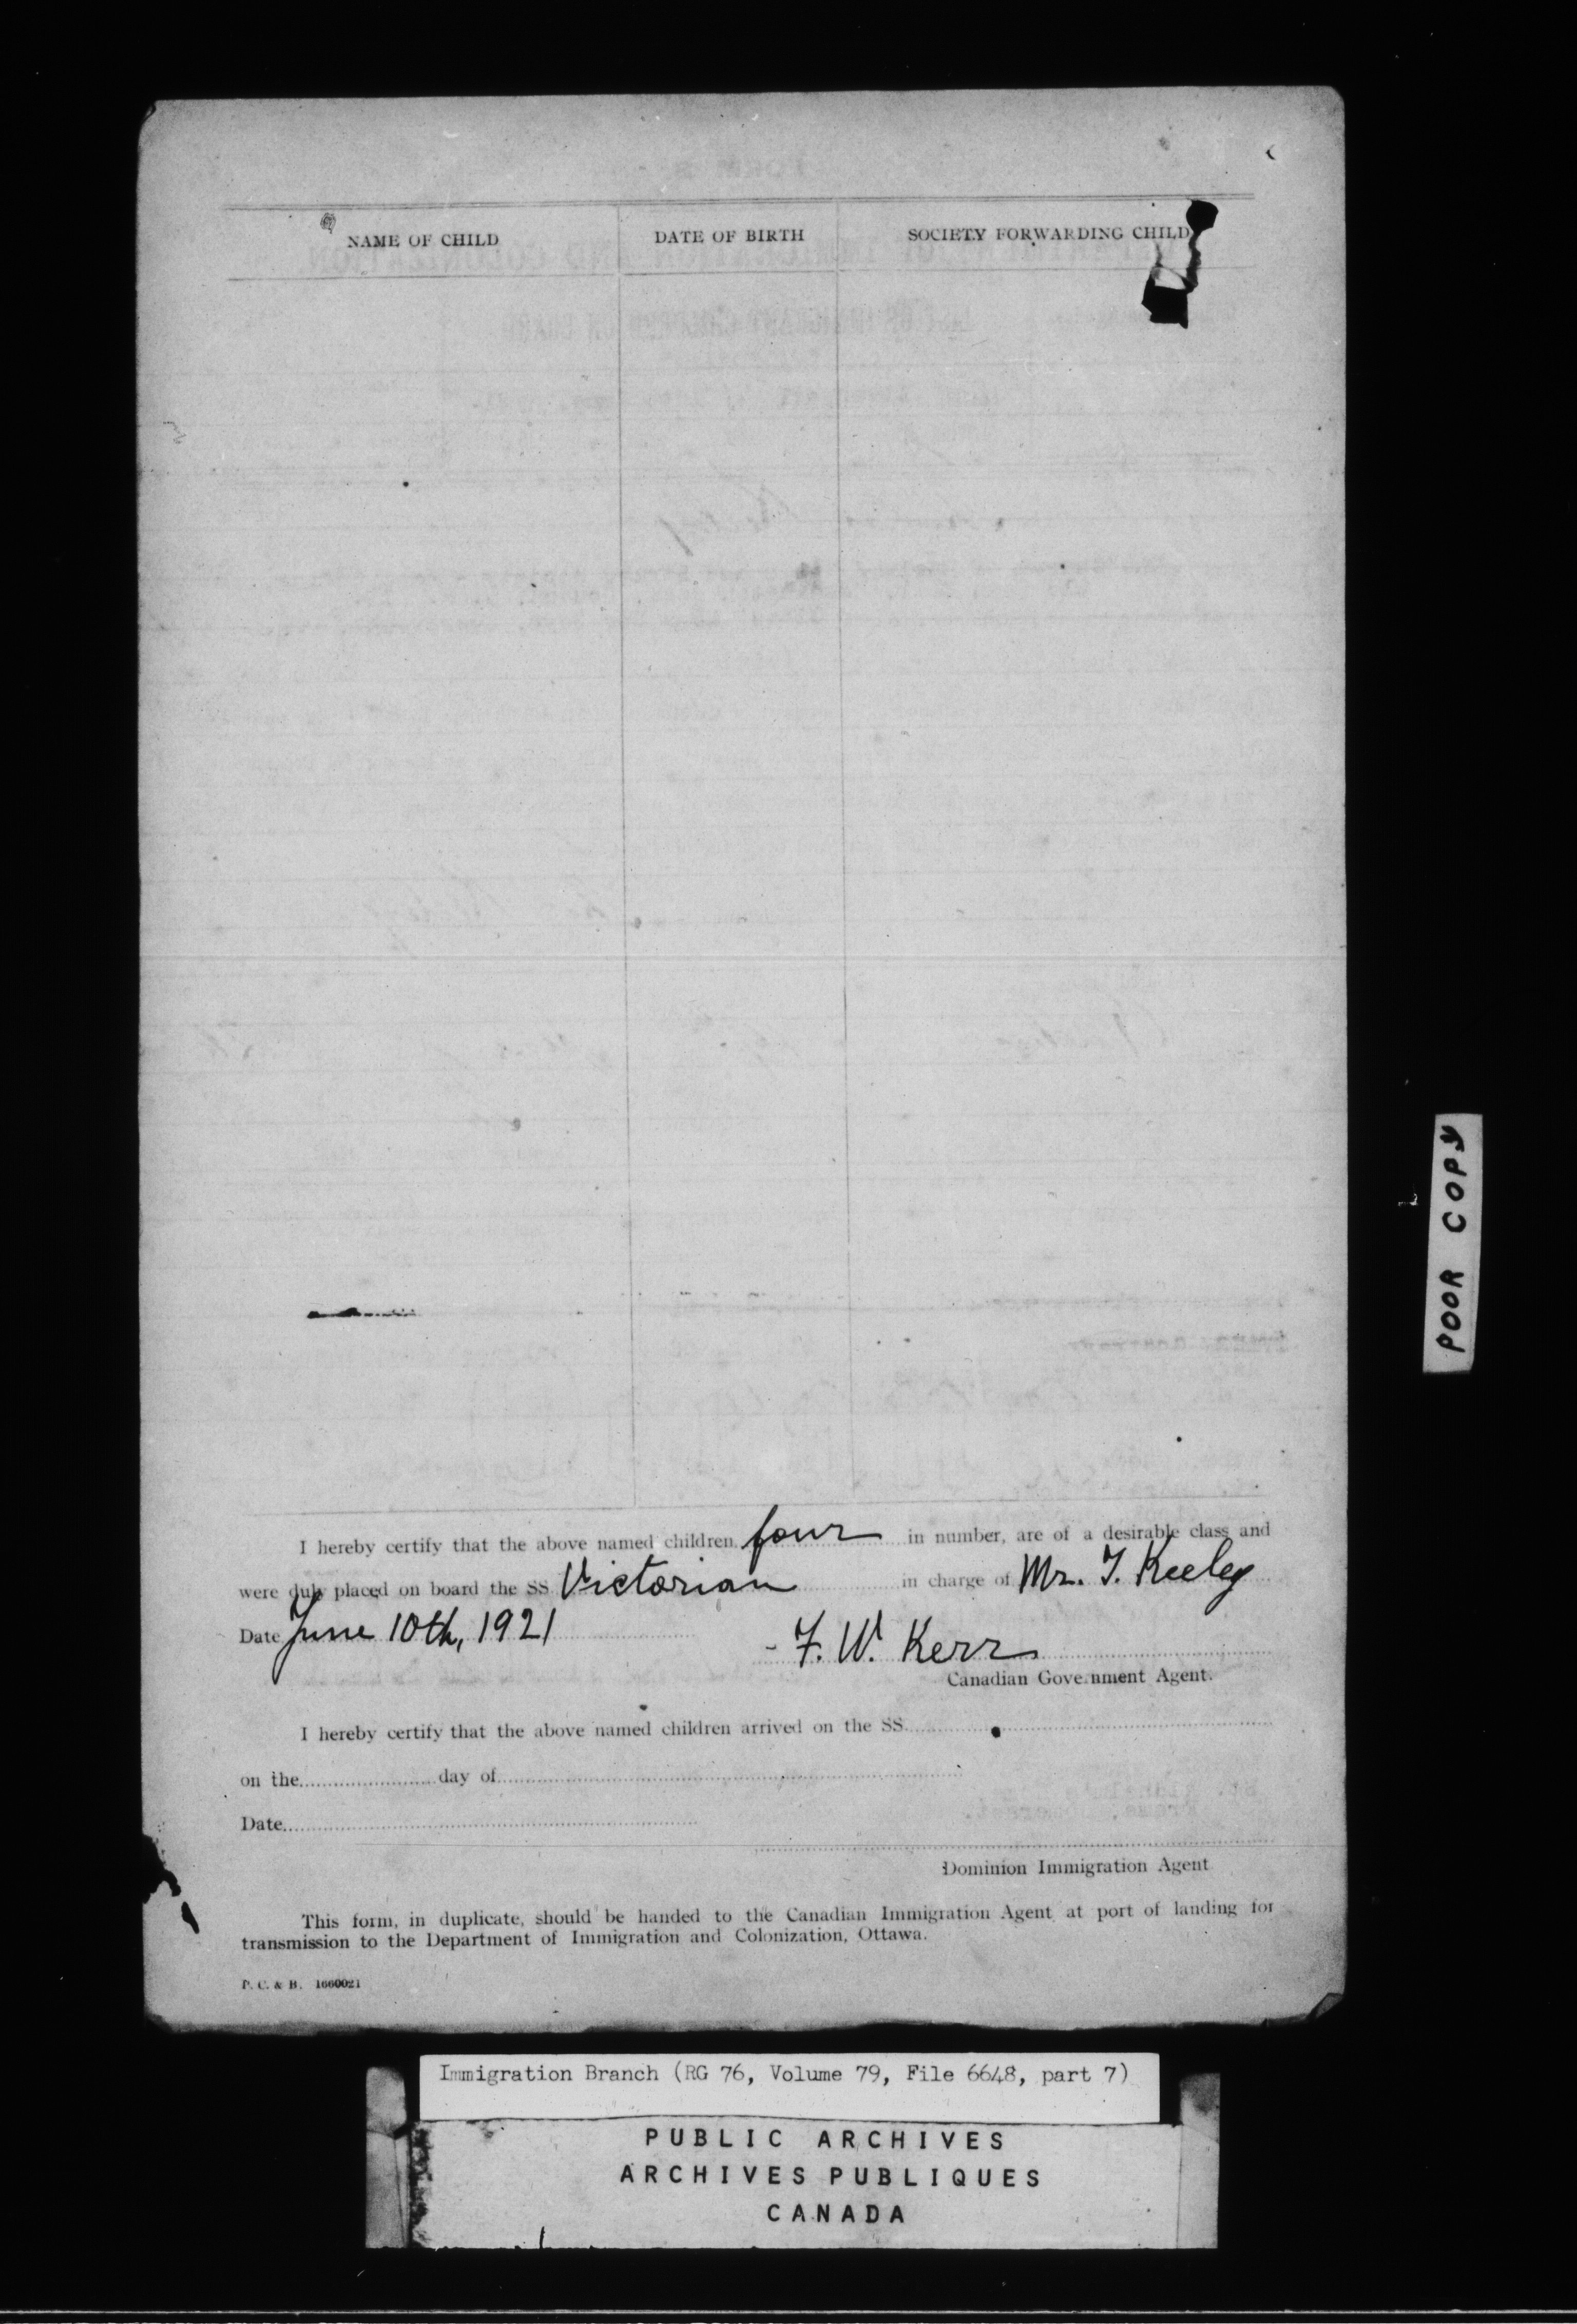 NAME OF CHILD DATE OF BIRTH SOCIETY FORWARDING CHILD
I hereby certify that the above named children, four in number, are of a desirable class and
were duly placed on board the SS. Victorian in charge of Mr. F. Keeley
Date June 10th, 1921 F. W. Kerr
Canadian Government Agent.
I hereby certify that the above named children arrived on the SS.
on the day of
Date
Dominion Immigration Agent
This form, in duplicate, should be handed to the Canadian Immigration Agent at port of landing for
transmission to the Department of Immigration and Colonization, Ottawa.
P. C. & B. 1660021
POOR COPY
Immigration Branch (RG 76, Volume 79, File 6648, part 7)
PUBLIC ARCHIVES
ARCHIVES PUBLIQUES
CANADA